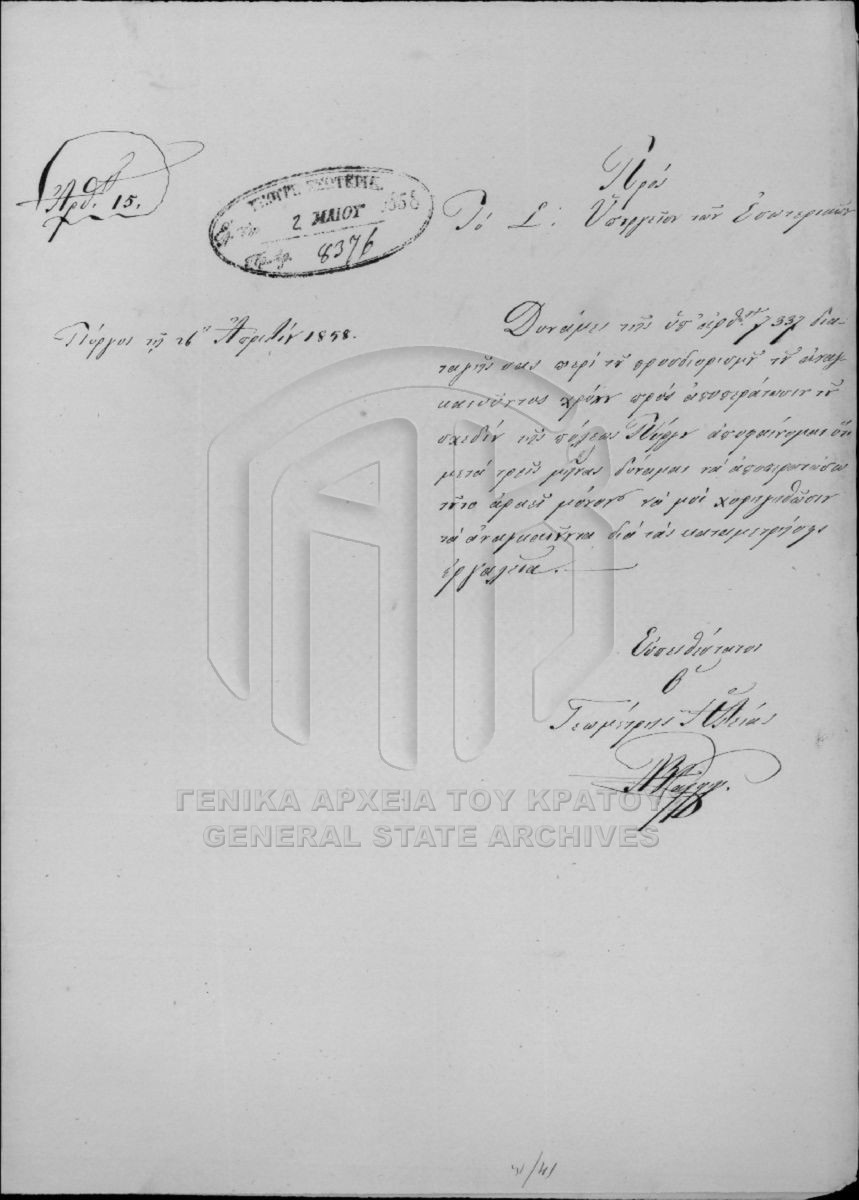 Ἀριθ. 15.
ΥΠΟΥΡΓ. ΕΣΩΤΕΡΙΚ.
2 ΜΑΙΟΥ 1858
8376
Πρὸς
Τὸ Σ. Ὑπουργεῖον τῶν Ἐσωτερικῶν
Πύργος τῇ 26 Ἀπριλίου 1858.
Δυνάμει τῆς ὑπ' ἀριθ. 7337 δια-
ταγῆς σας περὶ τοῦ προσδιορισμοῦ τοῦ ἀναγ-
καιοῦντος χρόνου πρὸς ἀποπεράτωσιν τοῦ
σχεδίου τῆς πόλεως Πύργου ἀποφαίνομαι ὅτι
μετὰ τρεῖς μῆνας δύναμαι νὰ ἀποπερατώσω
τοῦτο ἀρκεῖ μόνον νὰ μοὶ χορηγηθῶσιν
τὰ ἀναγκαιοῦντα διὰ τὰς καταμετρήσεις
ἐργαλεῖα.
Εὐπειθέστατος
Ὁ
Γεωμέτρης Ἠλείας
ΓΕΝΙΚΑ ΑΡΧΕΙΑ ΤΟΥ ΚΡΑΤΟΥΣ
GENERAL STATE ARCHIVES